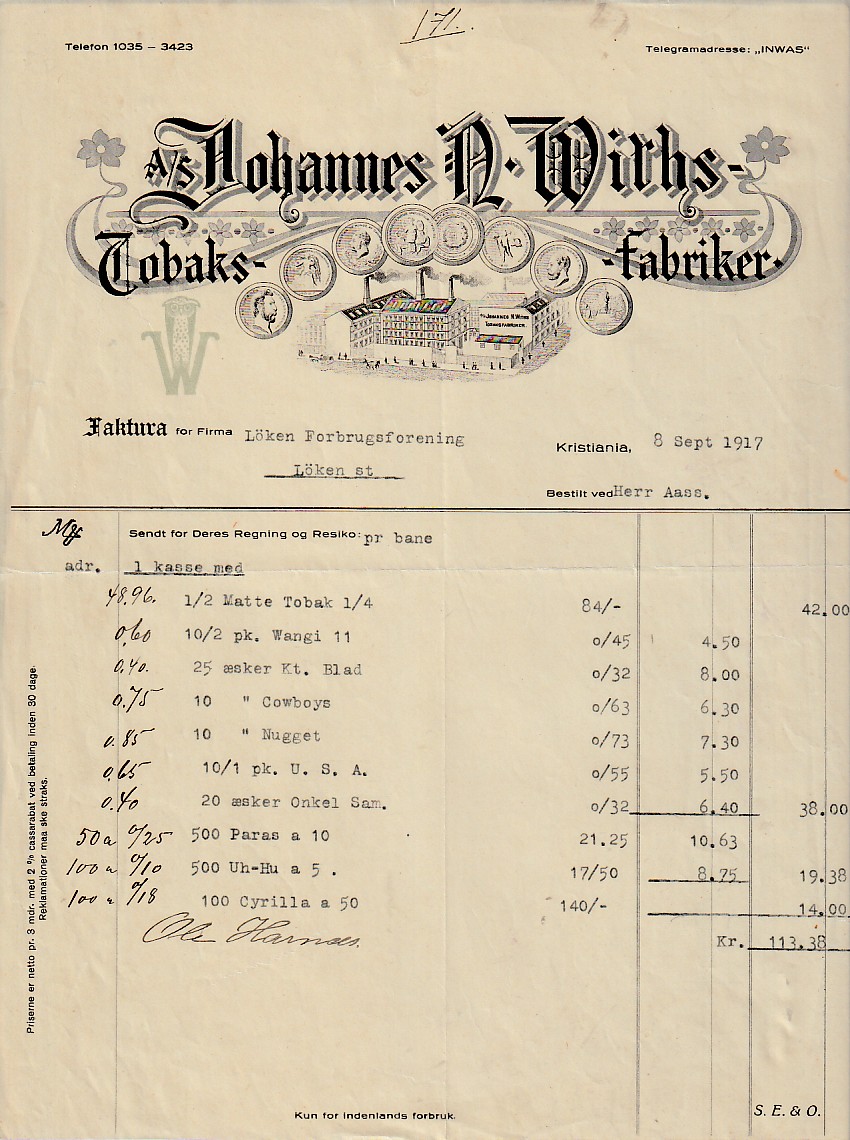 171.
Telefon 1035 – 3423
Telegramadresse: „INWAS"
A/S Johannes N. Wirhs-
Tobaks- -fabriker.
A/S JOHANNES N. WIRHS
TOBAKSFABRIKER.
W
Faktura for Firma Löken Forbrugsforening
Löken st
Kristiania, 8 Sept 1917
Bestilt ved Herr Aass.
Sendt for Deres Regning og Resiko: pr bane
adr. 1 kasse med
48.96. 1/2 Matte Tobak 1/4 84/- 42.00
0,60 10/2 pk. Wangi 11 o/45 4.50
0,40. 25 æsker Kt. Blad o/32 8.00
0.75 10 " Cowboys o/63 6.30
0.85 10 " Nugget o/73 7.30
0,65 10/1 pk. U. S. A. o/55 5.50
0.40 20 æsker Onkel Sam. o/32 6.40 38.00
50 a 0/25 500 Paras a 10 21.25 10.63
100 a 0/10 500 Uh-Hu a 5 . 17/50 8.75 19.38
100 a 0/18 100 Cyrilla a 50 140/- 14.00
Kr. 113.38
Priserne er netto pr. 3 mdr. med 2 % cassarabat ved betaling inden 30 dage.
Reklamationer maa ske straks.
Kun for indenlands forbruk.
S. E. & O.